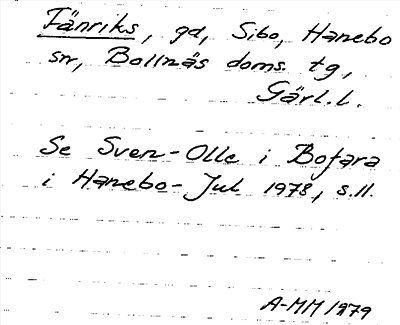 Fänriks, gd, Sibo, Hanebo
sn, Bollnäs doms. tg,
Gävl.l.
Se Sven-Olle i Bofara
i Hanebo-Jul 1978, s.11.
A-MM 1979